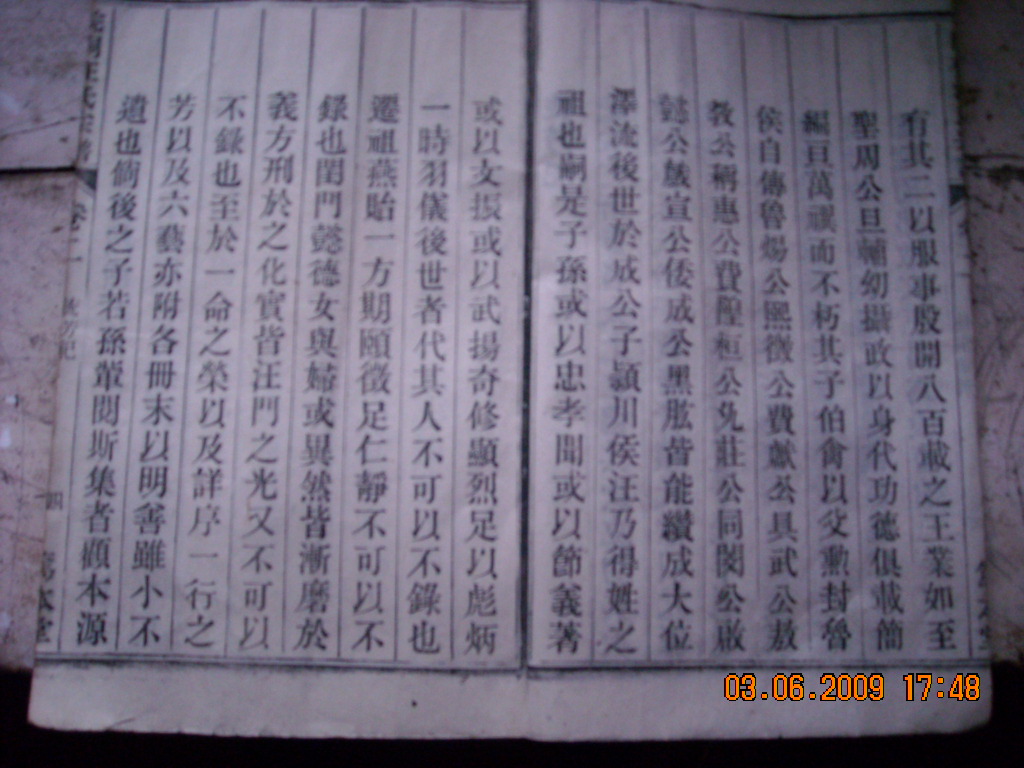 有其二以服事殷開八百載之王業如至
聖周公旦輔幼攝政以身代功德俱載簡
編亘萬禩而不朽其子伯禽以父勳封魯
侯自傳魯煬公熙徵公費獻公具武公敖
教公稱惠公費隉桓公允莊公同閔公啟
懿公戲宣公倭成公黑肱皆能纘成大位
澤流後世於成公子潁川侯汪乃得姓之
祖也嗣是子孫或以忠孝聞或以節義著
或以文振或以武揚奇修顯烈足以彪炳
一時羽儀後世者代其人不可以不錄也
遷祖燕貽一方期頤徵足仁靜不可以不
錄也閨門懿德女與婦或異然皆漸磨於
義方刑於之化實皆汪門之光又不可以
不錄也至於一命之榮以及詳序一行之
芳以及六藝亦附各冊末以明善雖小不
遺也倘後之子若孫輩閱斯集者顧本源
汪氏宗譜
卷二
四
本堂
03.06.2009 17:48